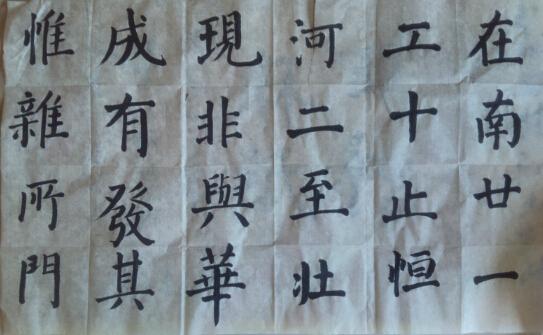 在南廿一
工十止恒
河二至壯
現非與華
成有發其
惟雜所門